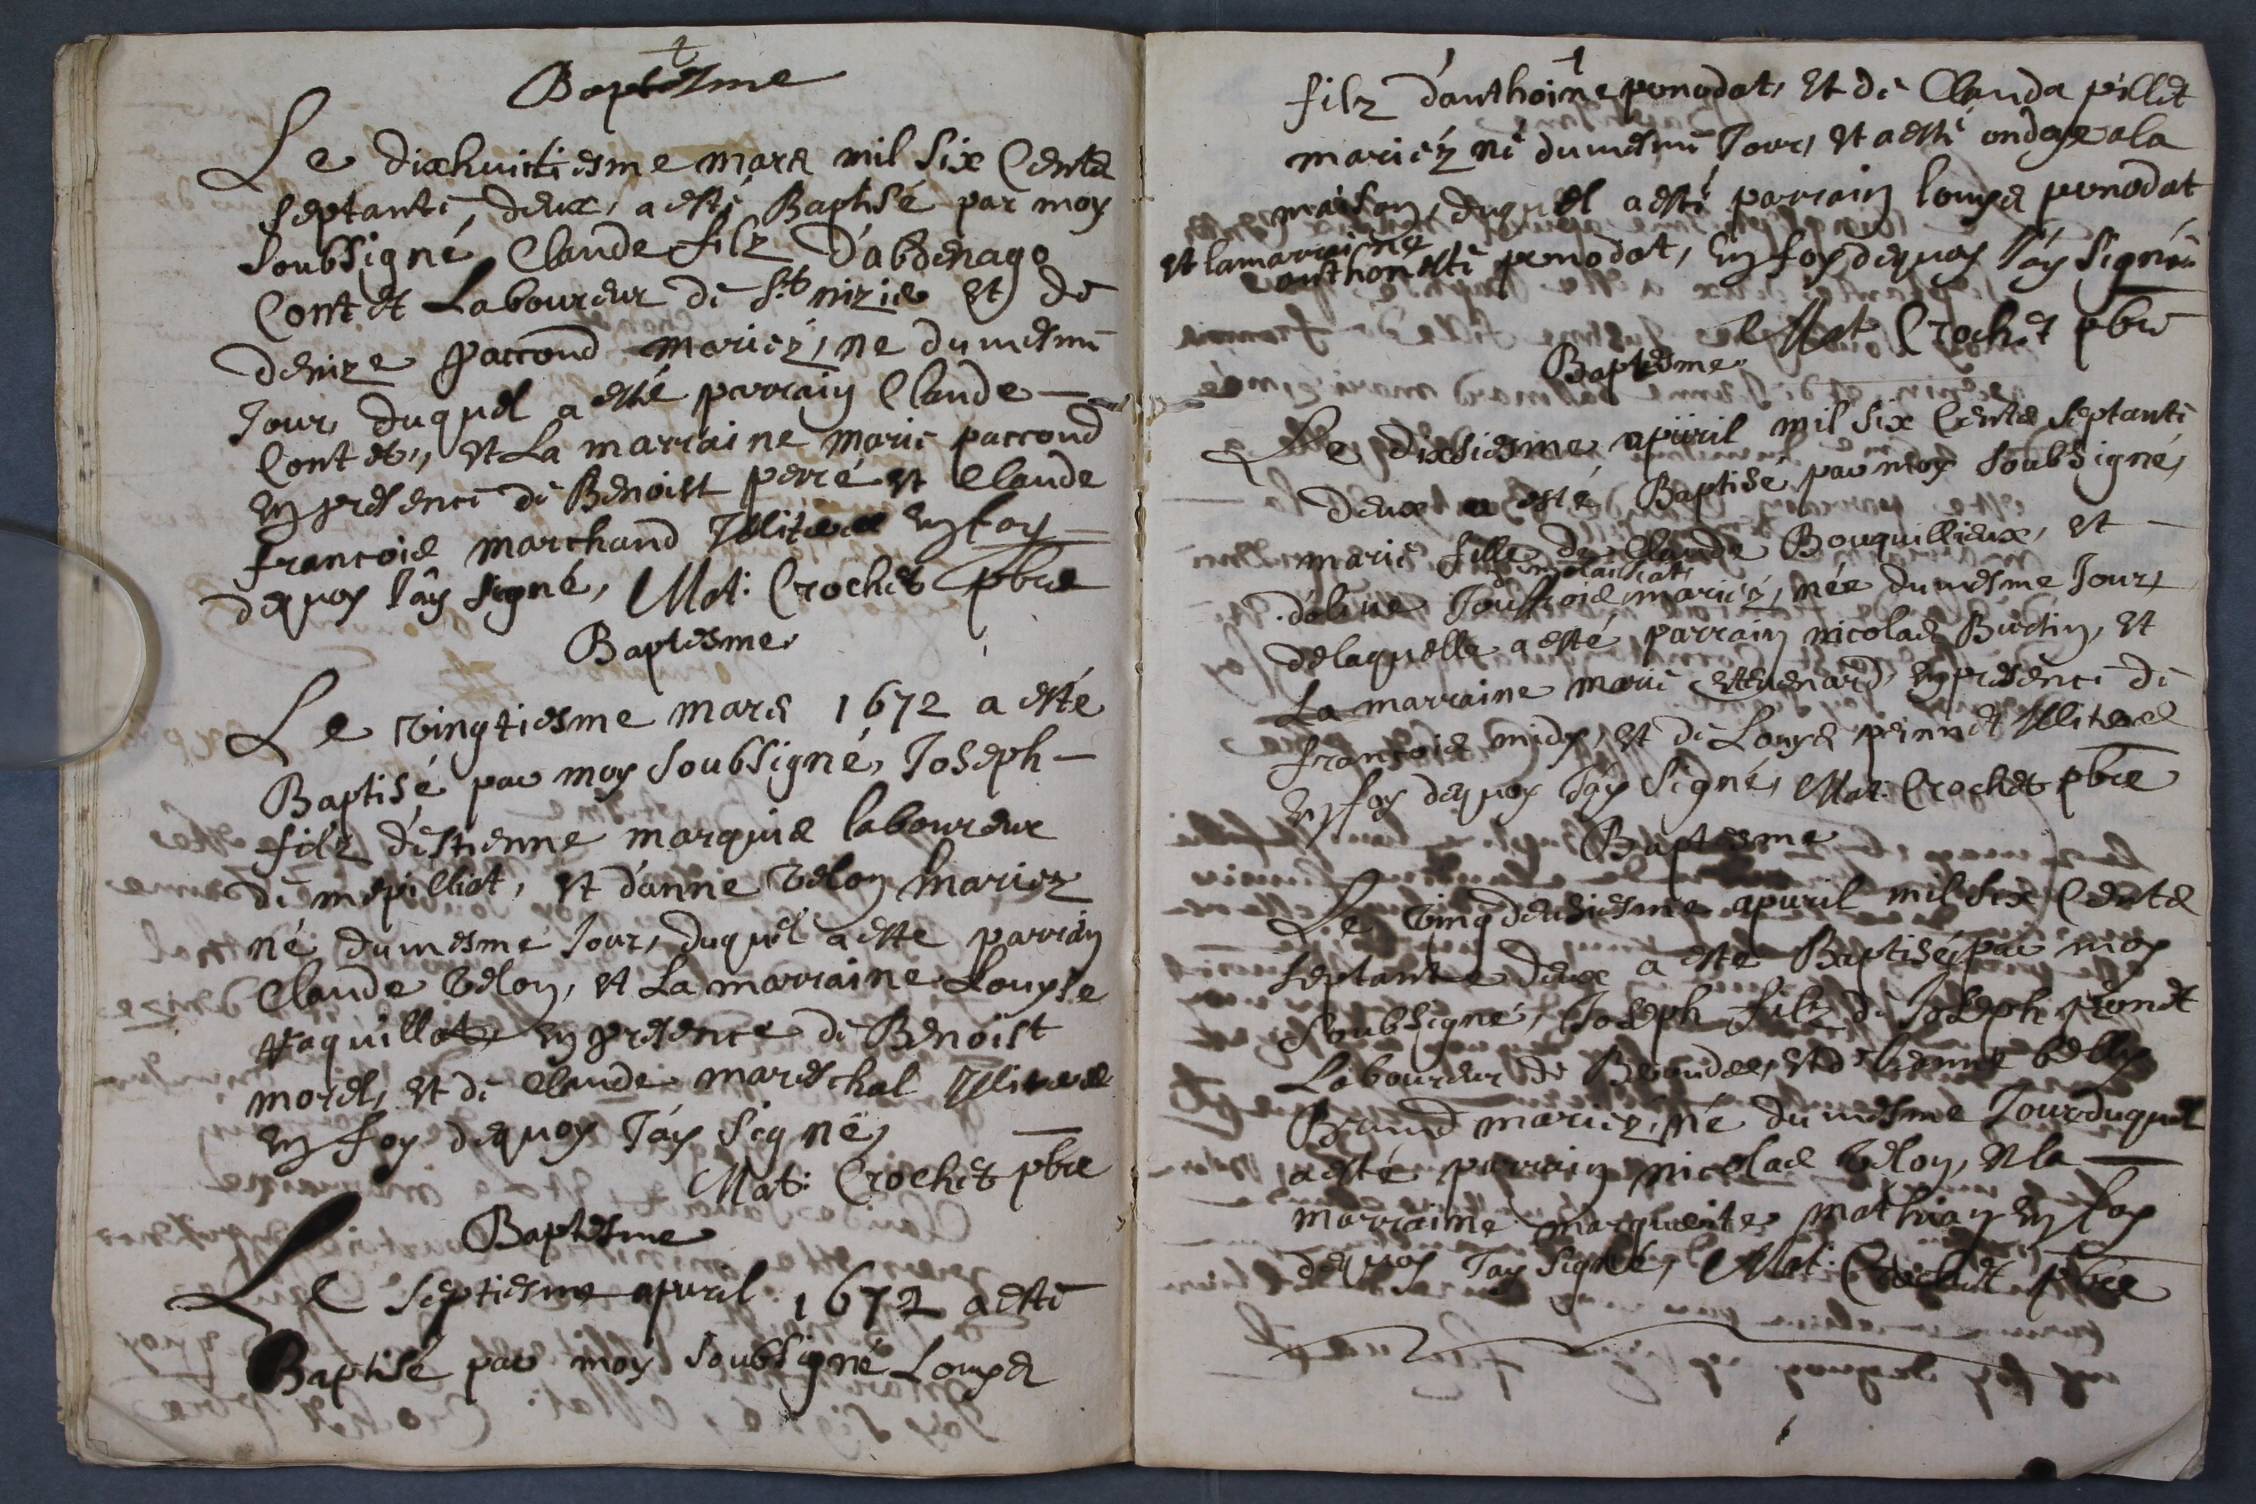 Baptesme
Le dixhuictiesme mars mil six Cents
septante, deux, a esté Baptisé par moy
soubsigné Claude filz d'abdenago
Contet Laboureur de St nizie et de
denize paccoud mariez, ne dumesme
Jour, duquel a esté parrain Claude
Contet, et La marraine marie paccoud
en presence de Benoist perré et Claude
francois marchand Illiteres en foy
dequoy J'ay signé, Mat: Crochet pbre
Baptesme
Le vingtiesme mars 1672 a esté
Baptisé par moy soubsigné, Joseph
filz d'estienne marquis laboureur
de mepilliat, et d'anne velon mariez
né dumesme Jour, duquel a esté parrain
Claude velon, et La marraine Louyse
paquillet, en presence de Benoist
morel, et de Claude mareschal Illiteres
en foy dequoy J'ay signé,
Mat: Crochet pbre
Baptesme
Le septiesme apvril 1672 a esté
Baptisé par moy soubsigné Louys
filz d'anthoine ponodat, et de Clauda pillet
mariez né dumesme Jour, et a esté ondoye a la
maison, duquel a esté parrain louys ponodat
et lamarraine
anthonette ponodat, en foy dequoy J'ay signé
Mat Crochet pbre
Baptesme
Le dixsiesme apvril mil six Cents septante
deux a esté Baptisé par moy soubsigné,
marie fille de Claude Bouquillieux, et
d'oline Jouffrois mariez, née dumesme Jour,
delaquelle a esté parrain nicolas Burtin, et
La marraine marie estevenard, en presence de
francois midy, et de Louys peinnet Illiteres
en foy dequoy J'ay signé, Mat: Crochet pbre
Baptesme
Le vingdeusiesme apvril mil six Cents
septante deux a esté Baptisé par moy
soubsigné, Joseph filz de Joseph ponet
Laboureur de et d'
Brund mariez, né dumesme Jour duquel
a esté parrain nicolas velon, et la
marraine marguerite mathian en foy
dequoy J'ay signé, Mat: Crochet pbre